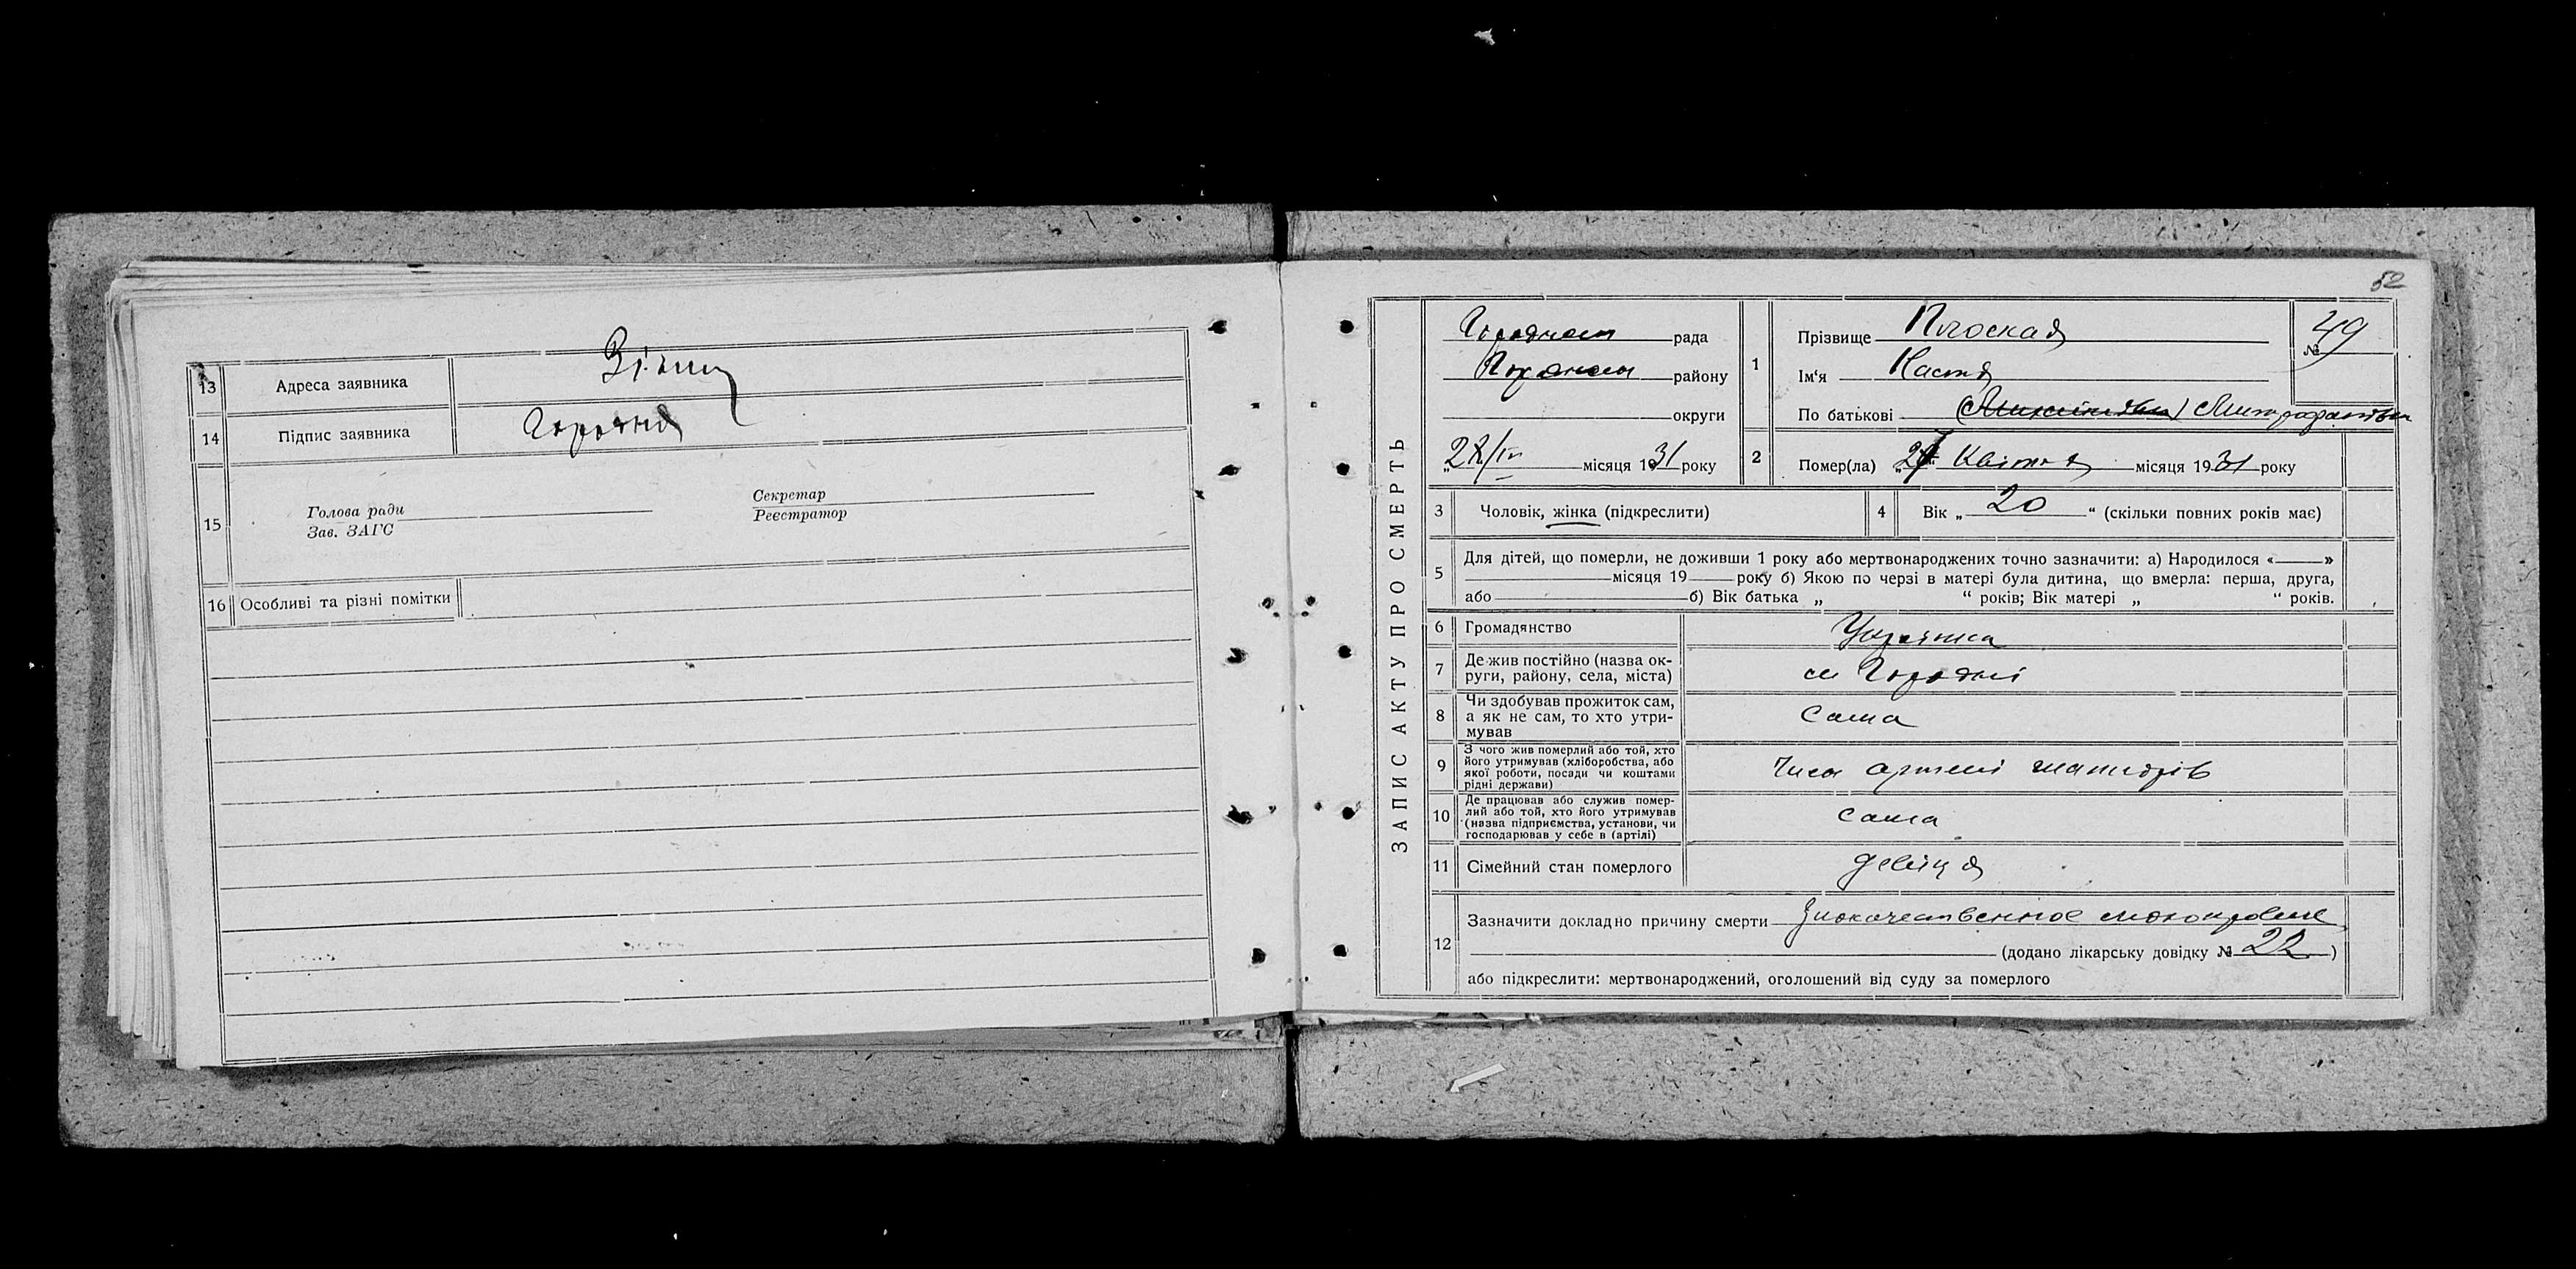 13 Адреса заявника
14 Підпис заявника Городня
15 Голова ради
Зав. ЗАГС
Секретар
Реєстратор
16 Особливі та різні помітки
52
ЗАПИС АКТУ ПРО СМЕРТЬ
рада
району
округи
„28/IV місяця 1931 року
1 Прізвище Плоская
Ім‘я Настя
По батькові Митрофановна
№ 49
2 Помер(ла) „27“ Квітня місяця 1931 року
3 Чоловік, жінка (підкреслити)
4 Вік „20“ (скільки повних років має)
5 Для дітей, що померли, не доживши 1 року або мертвонароджених точно зазначити: а) Народилося «——»
місяця 19 року б) Якою по черзі в матері була дитина, що вмерла: перша, друга,
або б) Вік батька „ “ років; Вік матері „ “ років.
6 Громадянство Українка
7 Де жив постійно (назва ок-
руги, району, села, міста) м Городні
8 Чи здобував прожиток сам,
а як не сам, то хто утри-
мував Сама
9 З чого жив померлий або той, хто
його утримував (хліборобства, або
якої роботи, посади чи коштами
рідні держави) Член артелі
10 Де працював або служив помер-
лий або той, хто його утримував
(назва підприємства, установи, чи
господарював у себе в (артілі) Сама
11 Сімейний стан померлого девіця
12 Зазначити докладно причину смерти Злокачественное малокровие
(додано лікарську довідку № 22)
або підкреслити: мертвонароджений, оголошений від суду за померлого